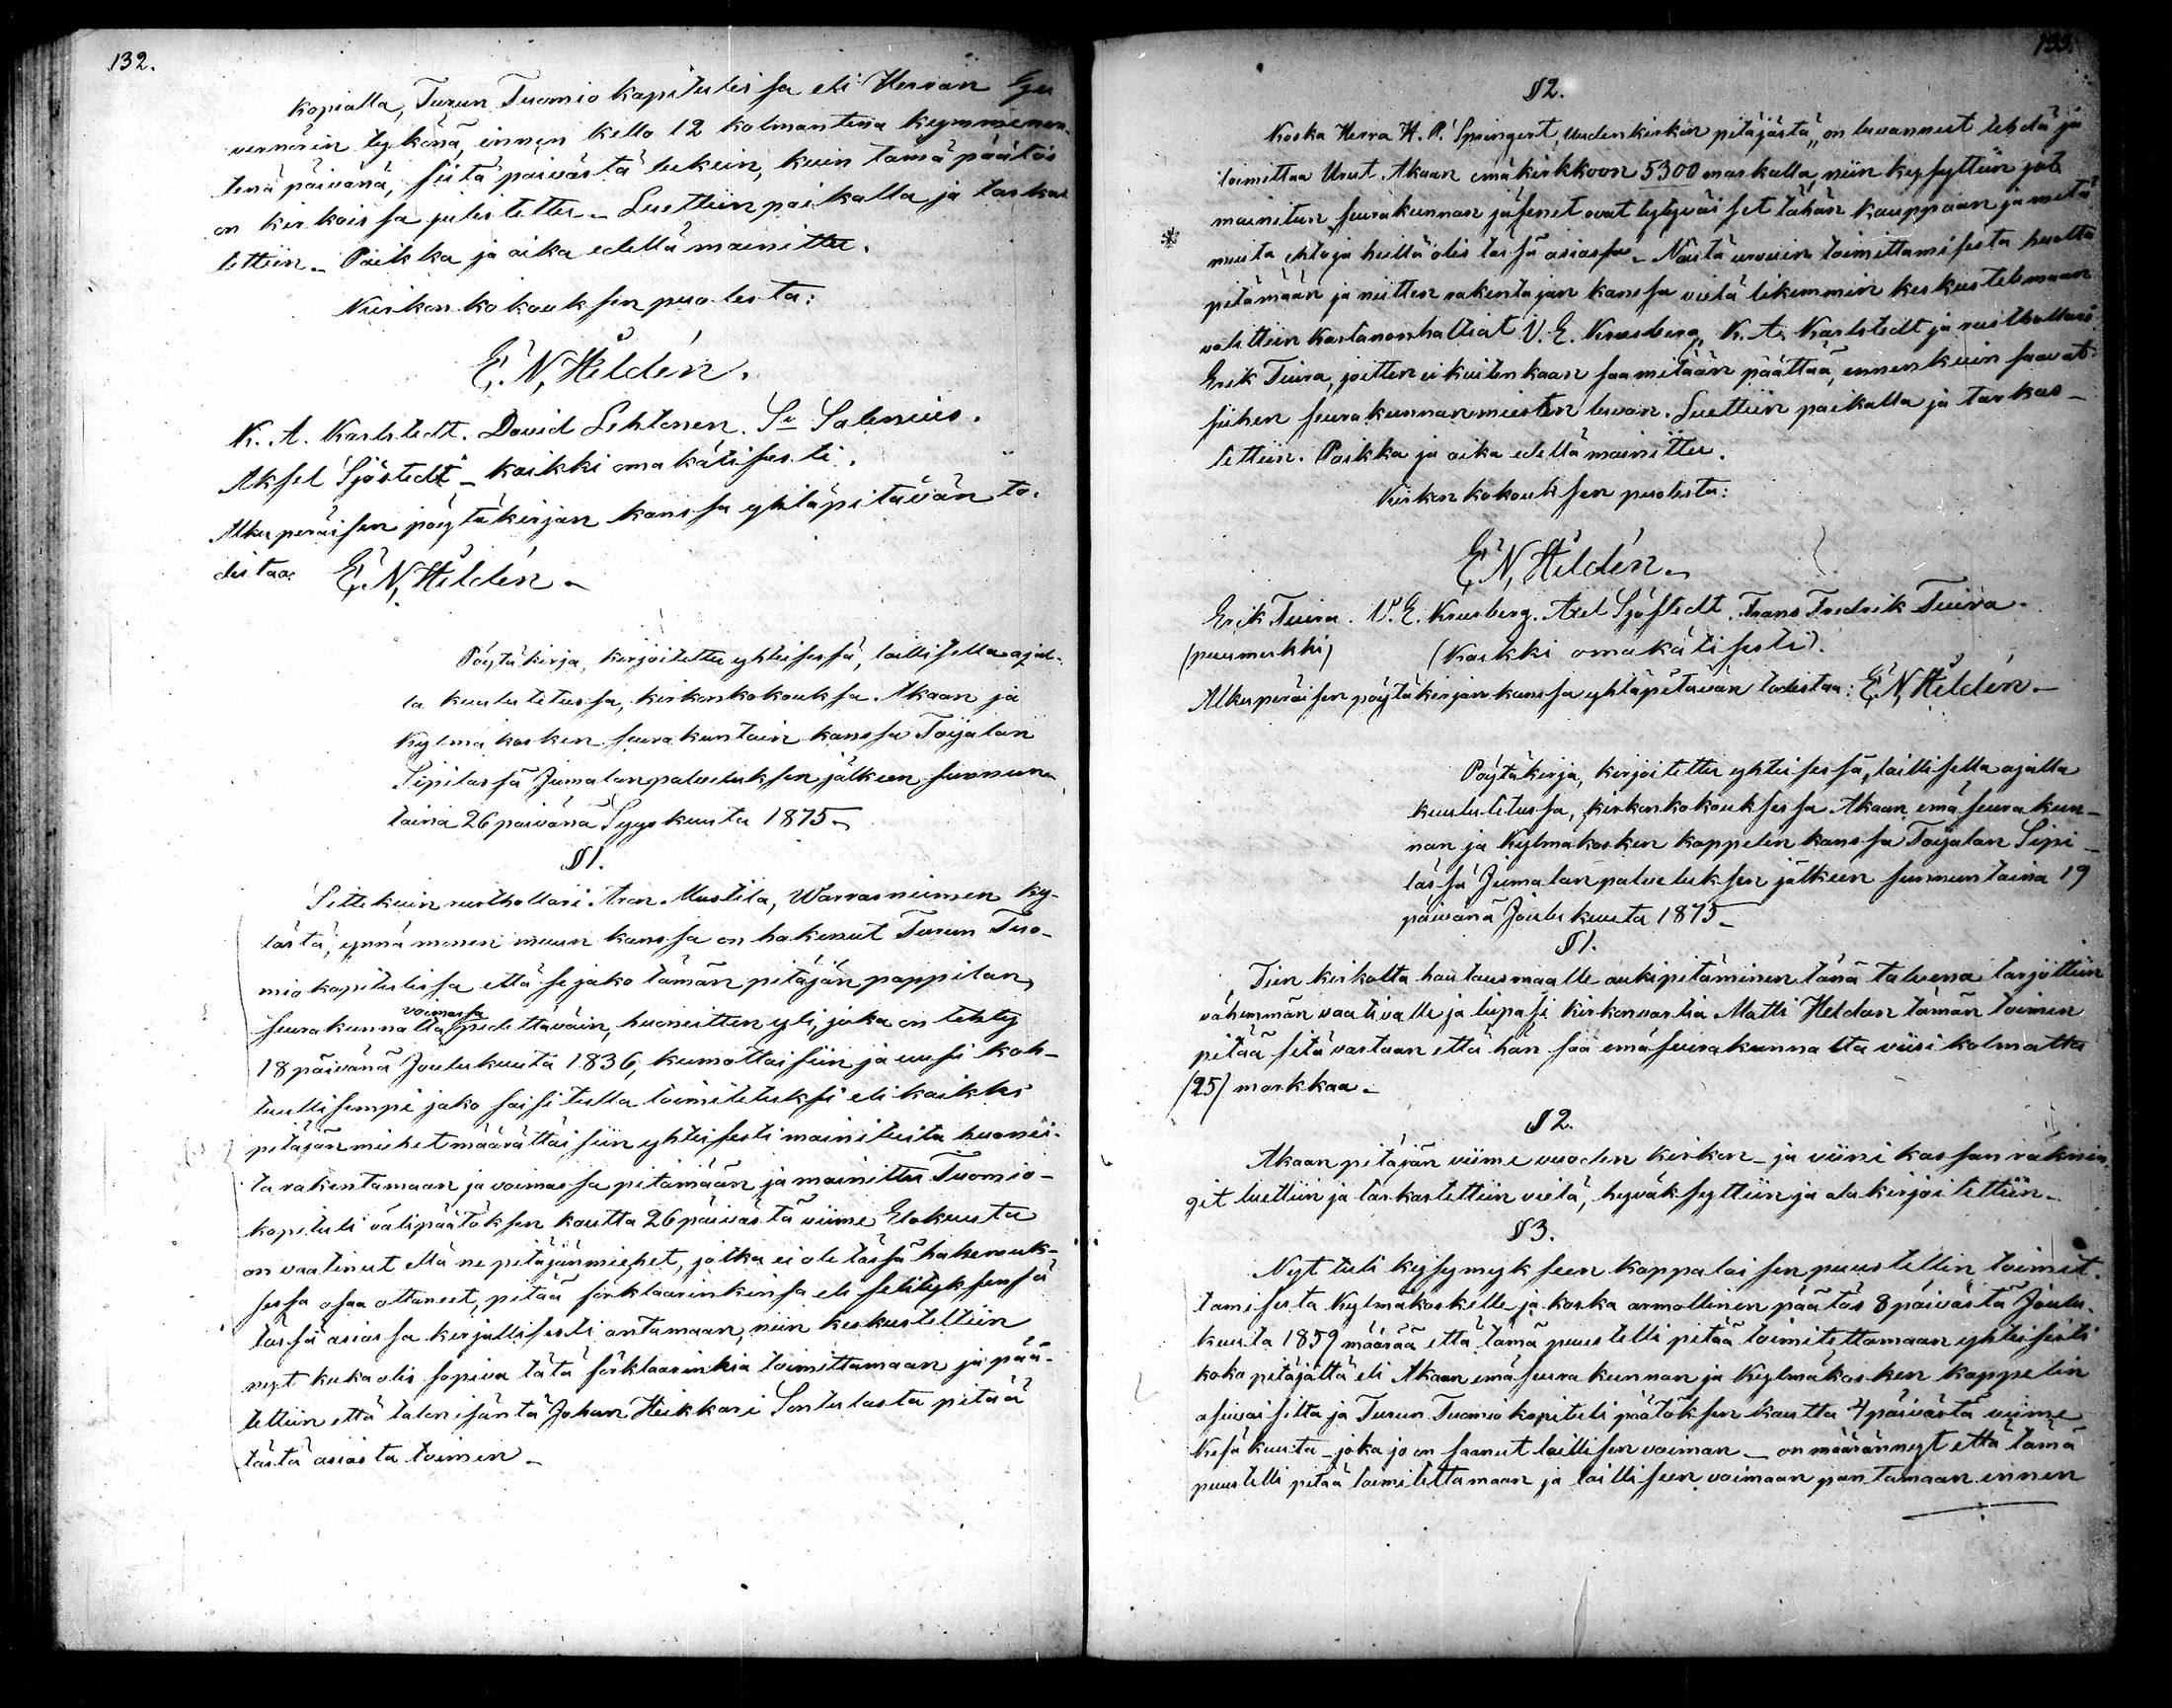 132.
kopialla, Turun Tuomiokapitulissa eli Herran Gu
vernörin tykönä, ennen kello 12 kolmantena kymmenen-
tenä päivänä, siitä päivästä lukein, kuin tämä päätös
on kirkoissa julistettu. Luettiin paikalla ja tarkas
tettiin. Paikka ja aika edellä mainittu.
Kirkonkokouksen puolesta:
E. N. Hildén.
K. A. Karlstedt. David Lehtonen. Salenius.
Aksel Sjöstedt – kaikki omakätisesti.
Alkuperäisen pöytäkirjan kanssa yhtäpitävän to-
distaa: E. N. Hildén –
Pöytäkirja, kirjoitettu yhteisessä, laillisella ajal-
la kuulutetussa, kirkonkokouksa Akaan ja
Kylmäkosken seurakuntain kanssa Toijalan
Sipilässä Jumalanpalveluksen jälkeen sunnun
taina 26 päivänä Syyskuuta 1875 –
§ 1.
Sittekuin rusthollari Aron Mustila, Warrasniemen ky-
lästä, ynnä monen muun kanssa on hakenut Turun Tuo-
mio kapitulissa että se jako tämän pitäjän pappilan,
voimassa
seurakunnalta pidettäväin, huoneitten yli, joka on tehty
18 päivänä Joulukuuta 1836, kumottaisiin ja uusi koh-
tuullisempi jako saisi tulla toimitetuksi eli kaikki
pitäjän miehet määrättäisiin yhteisesti mainituita huonei-
ta rakentamaan ja voimassa pitämään ja mainittu Tuomio-
kapituli välipäätöksen kautta 26 päivästä viime Elokuuta
on vaatinut että ne pitäjänmiehet, jotka ei ole tässä hakemuk-
sessa osaa ottaneet, pitää förklaarinkinsa eli selityksensä
tässä asiassa kirjallisesti antamaan, niin keskusteltiin
nyt kuka olis sopiva tätä förklaarinkia toimittamaan ja pää-
tettiin että talon isäntä Johan Heikkari Sontulasta pitää
tästä asiasta toimen –
133.
§ 2.
Koska Herra H. P. Springert, Uudenkirkon pitäjästä, on luvannut tehdä ja
toimittaa Urut Akaan emäkirkkoon 5300 markalla, niin kysyttiin jos
mainitun seurakunnan jäsenet ovat tytyväiset tähän kauppaan ja mitä
muita ehtoja heillä olis tässä asiassa. – Näitä urvuin toimittamisesta huolta
pitämään ja niitten rakentajan kanssa vielä likemmin keskustelemaan
valittiin Kartanonhaltiat V. E. Krusberg, K. A. Karlstedt ja rusthollari
Erik Tuira, joitten ei kuitenkaan saa mitään päättää, ennenkuin saavat
siihen seurakunnanmiesten luvan. Luettiin paikalla ja tarkas –
tettiin. Paikka ja aika edellä mainittu.
Kirkonkokouksen puolesta:
E. N. Hildén –
Erik Tuira. V. E. Krusberg. Axel Sjöstedt. Frans Fredrik Tuira.
(puumerkki) (Kaikki omakätisesti).
Alkuperäisen pöytäkirjan kanssa yhtäpitävän todistaa: E. N. Hildén. –
Pöytäkirja, kirjoitettu yhteisessä, laillisella ajalla
kuulutetussa, kirkonkokouksessa Akaan emäseurakun-
nan ja Kylmäkosken kappelin kanssa Toijalan Sipi –
lässä Jumalanpalveluksen jälkeen sunnuntaina 19
päivänä Joulukuuta 1875 –
§ 1.
Tien kirkolta hautausmaalle aukipitäminen tänä talvena tarjottiin
vähimmän vaativalle ja lupasi kirkonvartia Matti Heldan tämän toimen
pitää sitä vastaan että hän saa emäseurakunnalta viisi kolmatta
/25/ markkaa. –
§ 2.
Akaan pitäjän viime vuoden kirkon- ja viini kassan räknin
git luettiin ja tarkastettiin vielä, hyväksyttiin ja alakirjoitettiin. –
§ 3.
Nyt tuli kysymykseen kappalaisen puustellin toimit-
tamisesta Kylmäkoskelle ja koska armollinen päätös 8 päivästä Joulu-
kuuta 1859 määrää että tämä puustelli pitää toimitettamaan yhteisesti
koko pitäjältä eli Akaan emäseurakunnan ja Kylmäkosken kappelin
asuvaisilta ja Turun Tuomiokapituli päätöksen kautta 4 päivästä viime
Kesäkuuta – joka jo on saanut laillisen voiman – on määrännyt että tämä
puustelli pitää toimitettamaan ja lailliseen voimaan pantamaan ennen